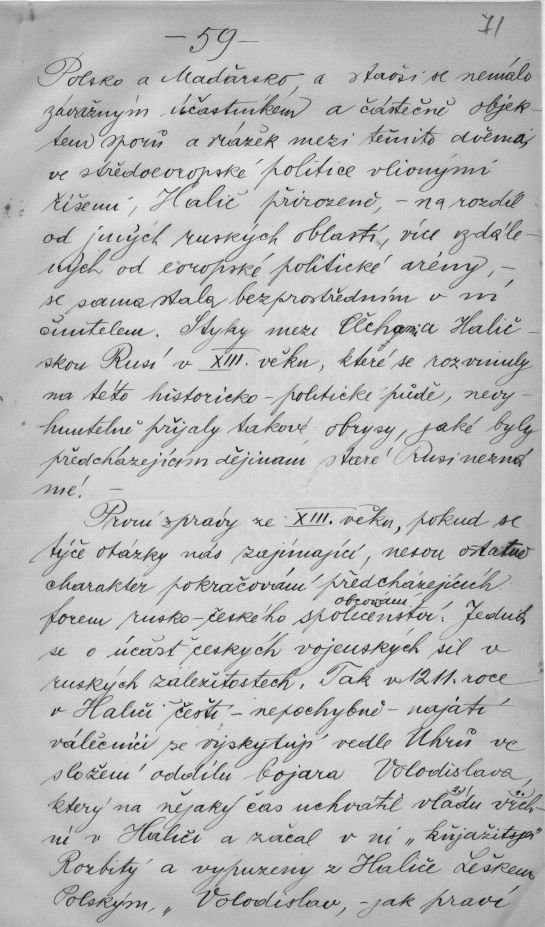 71
- 59 -
Polsko a Maďarsko, a stavši se nemálo
závažným účastníkem a částečně objek-
tem sporů a srážek mezi těmito dvěma,
ve středoevropské politice vlivnými
říšemi, Halič přirozeně, - na rozdíl
od jiných ruských oblastí, více vzdále-
ných od evropské politické arény, -
se sama stala bezprostředním v ní
činitelem. Styky mezi Čechami a Halič-
skou Rusí v XIII. věku, které se rozvinuly
na této historicko-politické půdě, nevy-
hnutelně přijaly takové obrysy, jaké byly
předcházejícím dějinám staré Rusi nezná
mé. -
První zprávy ze XIII. věku, pokud se
týče otázky nás zajímající, nesou ostatně
charakter pokračování předcházejících
forem rusko-českého společenství. obcování Jedná
se o účast českých vojenských sil v
ruských záležitostech. Tak v 1211. roce
v Haliči češti - nepochybně - najatí
válečníci se vyskytují vedle Uhrů ve
složení oddílu bojara Volodislava,
který na nějaký čas uchvátil vládu
v Haliči a začal v ní „
Rozbitý a vypuzený z Haliče Leškem
Polským, „Volodislav, - jak praví